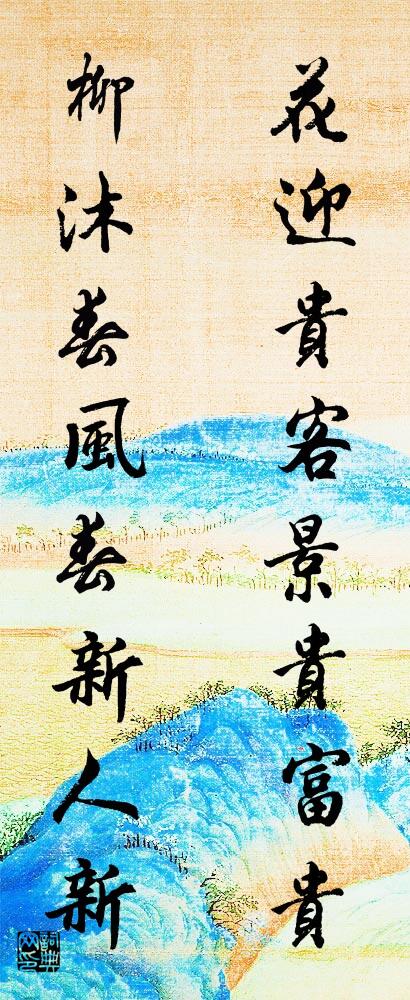 花迎貴客景貴富貴
柳沐春風春新人新